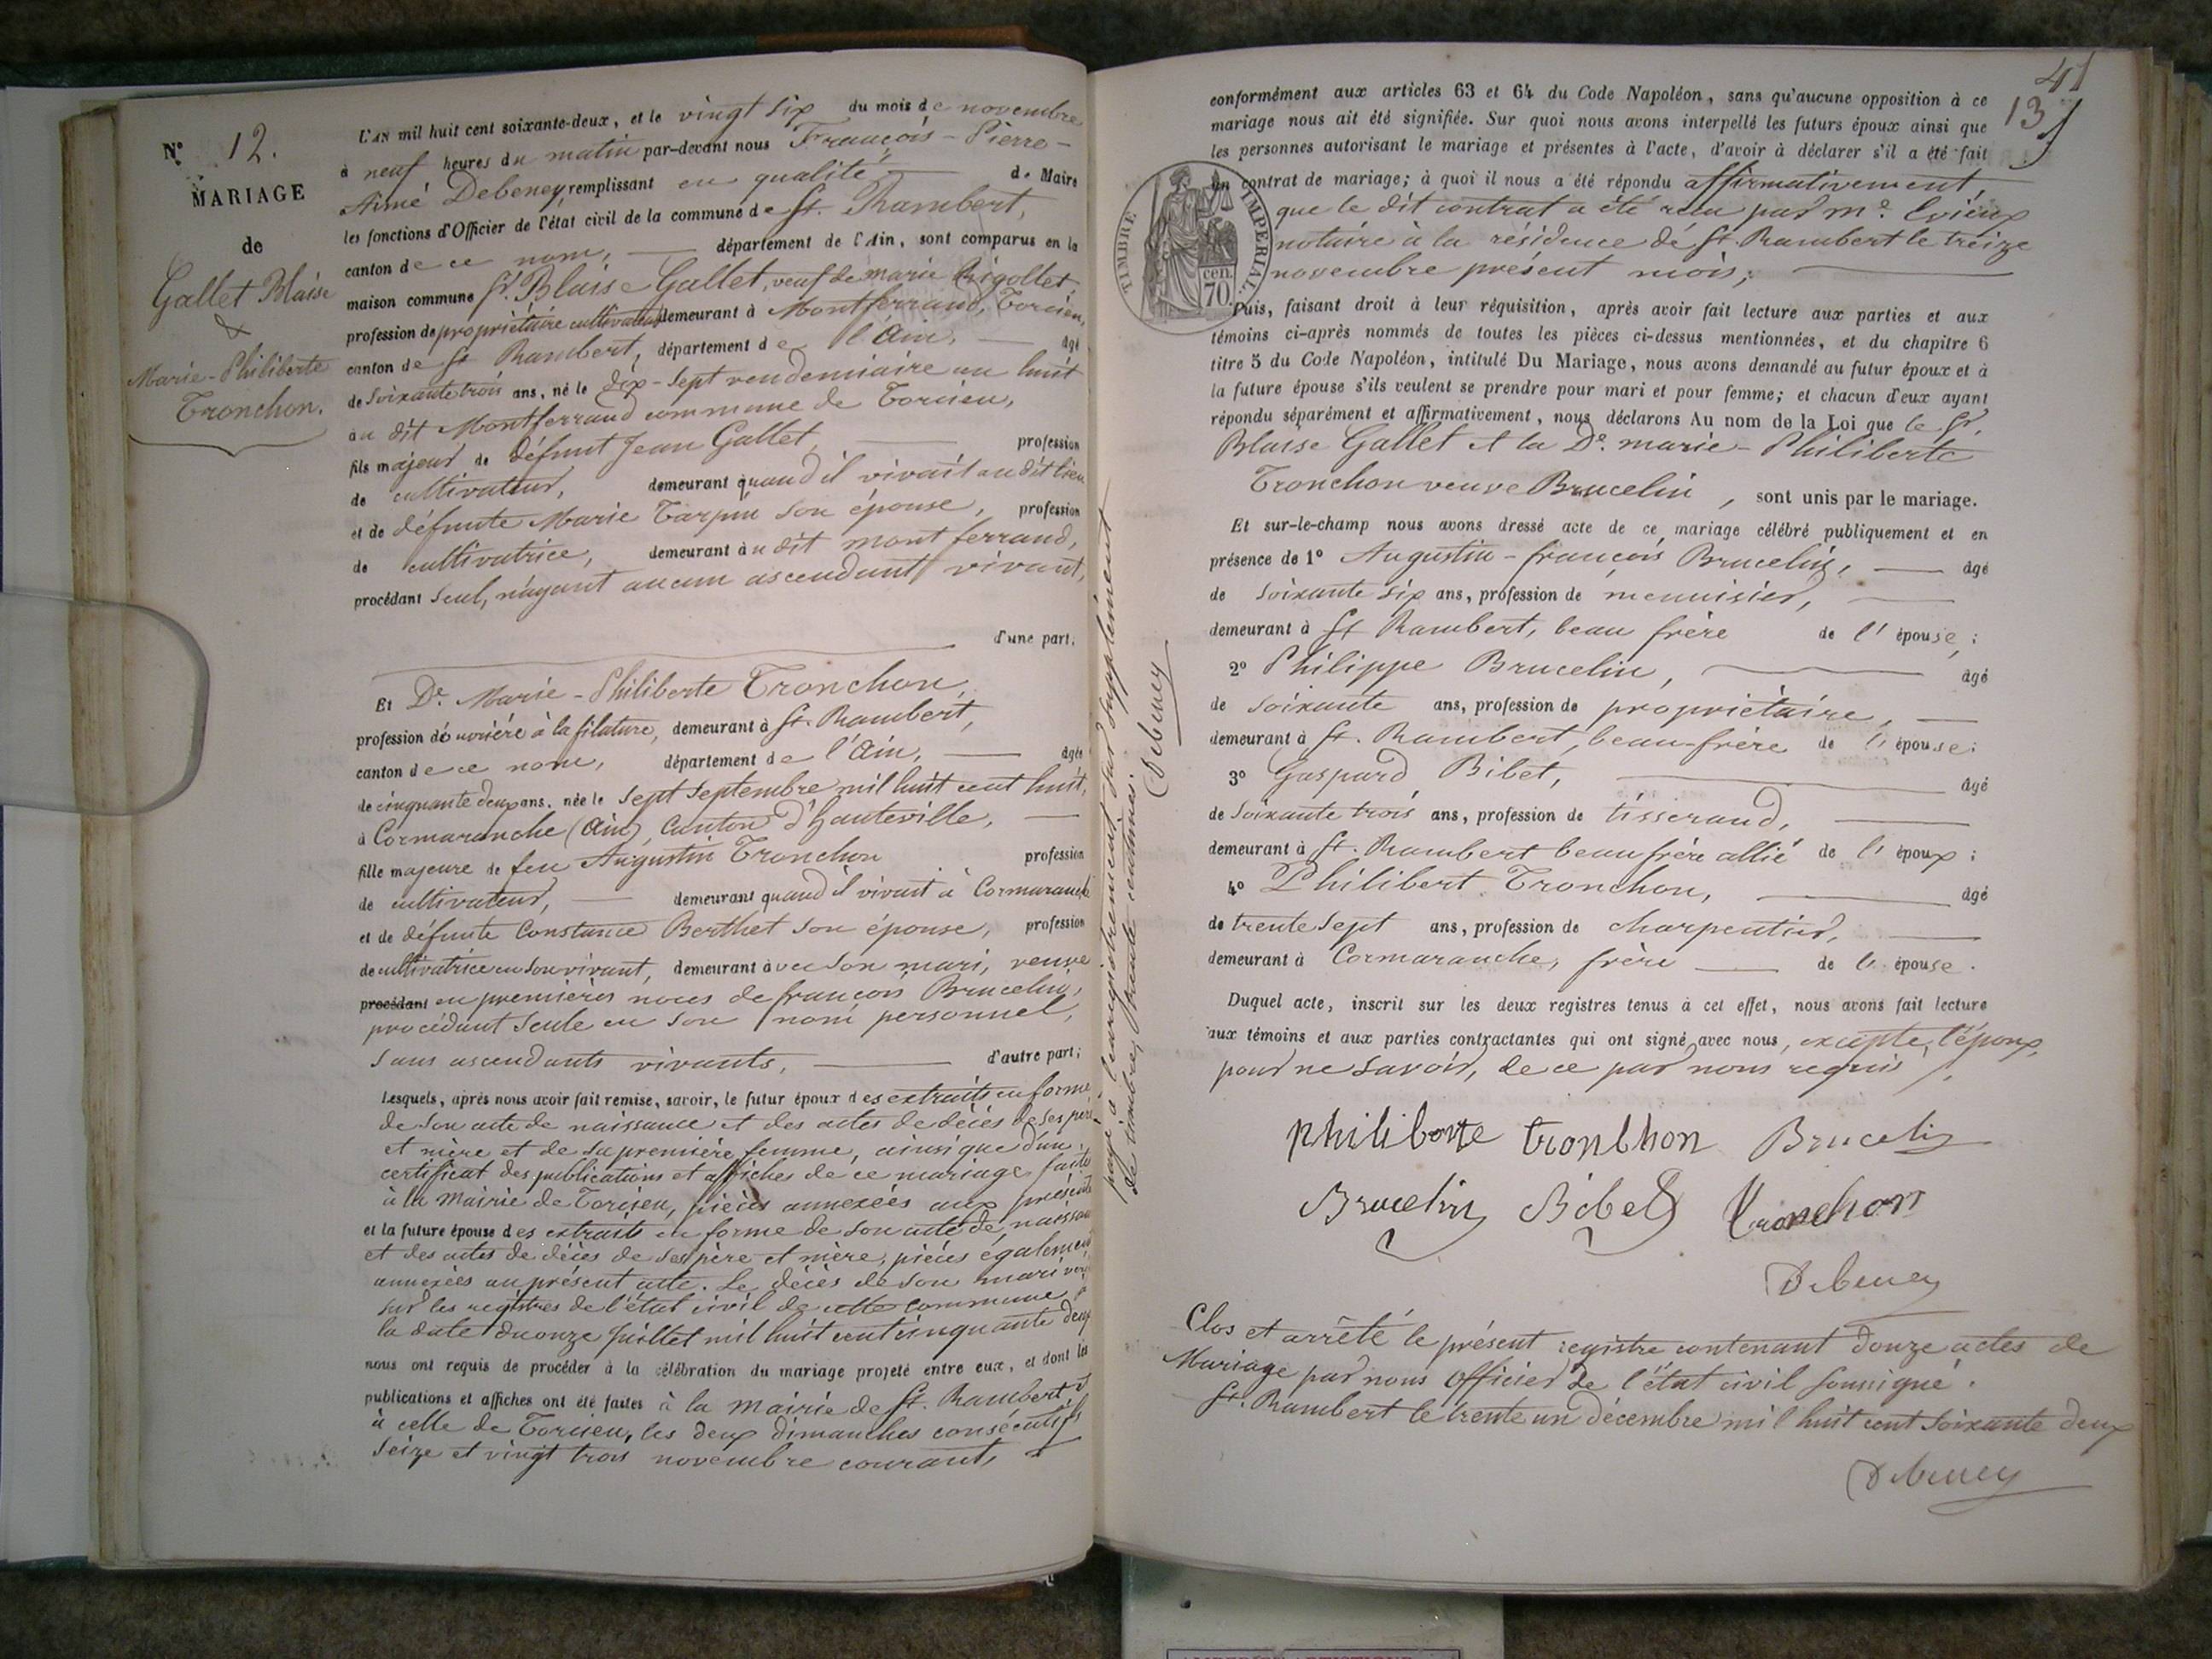 N° 12.
MARIAGE
de
Gallet Blaise
&
Marie-Philiberte
Tronchon.
L'AN mil huit cent soixante-deux, et le vingt six du mois de novembre
à neuf heures du matin par-devant nous François-Pierre-
Aimé Debeney, remplissant en qualité de Maire
les fonctions d'Officier de l'état civil de la commune de St. Rambert,
canton de ce nom, département de l'Ain, sont comparus en la
maison commune Sr. Blaise Gallet, veuf de marie Rigollet,
profession de propriétaire cultivateur demeurant à Montferrand, Torcieu,
canton de St Rambert, département de l'Ain, âgé
de soixante trois ans, né le dix-sept vendemiaire an huit
au dit Montferrand commune de Torcieu,
fils majeur de défunt Jean Gallet, profession
de cultivateur, demeurant quand il vivait au dit lieu
et de défunte Marie Tarpin son épouse, profession
de cultivatrice, demeurant au dit mont ferrand,
procédant seul, n'ayant aucun ascendant vivant,
d'une part.
Et De. Marie-Philiberte Tronchon,
profession d'ouvrière à la filature, demeurant à St. Rambert,
canton de ce nom, département de l'Ain, âgée
de cinquante deux ans, née le sept septembre mil huit cent huit,
à Cormaranche (Ain), canton d'Hauteville,
fille majeure de feu Augustin Tronchon profession
de cultivateur, demeurant quand il vivait à Cormaranche
et de défunte Constance Berthet son épouse, profession
de cultivatrice en son vivant, demeurant avec son mari, veuve
procédant en premières noces de françois Brucelin,
procédant seule en son nom personnel,
sans ascendants vivants, d'autre part;
Lesquels, après nous avoir fait remise, savoir, le futur époux des extraits en forme
de son acte de naissance et des actes de décès de ses père
et mère et de sa première femme, ainsi que d'un
certificat des publications et affiches de ce mariage faite
à la Mairie de Torcieu, pièces annexées aux présentes
et la future épouse des extraits en forme de son acte de naissance
et des actes de décès de ses père et mère, pièces également
annexées au présent acte. Le décès de son mari
sur les registres de l'état civil de cette commune à
la date du onze juillet mil huit cent cinquante deux
nous ont requis de procéder à la célébration du mariage projeté entre eux, et dont les
publications et affiches ont été faites à la Mairie de St. Rambert et
à celle de Torcieu, les deux dimanches consécutifs
seize et vingt trois novembre courant,
payé à l'enregistrement pour supplément
de timbre, trente centimes.
Debeney
41
13
conformément aux articles 63 et 64 du Code Napoléon, sans qu'aucune opposition à ce
mariage nous ait été signifiée. Sur quoi nous avons interpellé les futurs époux ainsi que
les personnes autorisant le mariage et présentes à l'acte, d'avoir à déclarer s'il a été fait
un contrat de mariage; à quoi il nous a été répondu affirmativement,
que le dit contrat a été reçu par Me. Evieux
notaire à la résidence de St. Rambert le treize
novembre présent mois;
TIMBRE IMPERIAL
70 cen.
Puis, faisant droit à leur réquisition, après avoir fait lecture aux parties et aux
témoins ci-après nommés de toutes les pièces ci-dessus mentionnées, et du chapitre 6
titre 5 du Code Napoléon, intitulé Du Mariage, nous avons demandé au futur époux et à
la future épouse s'ils veulent se prendre pour mari et pour femme; et chacun d'eux ayant
répondu séparément et affirmativement, nous déclarons Au nom de la Loi que le Sr.
Blaise Gallet et la De. marie-Philiberte
Tronchon veuve Brucelin, sont unis par le mariage.
Et sur-le-champ nous avons dressé acte de ce mariage célébré publiquement et en
présence de 1° Augustin-françois Brucelin, âgé
de soixante six ans, profession de menuisier,
demeurant à St Rambert, beau frère de l'épouse;
2° Philippe Brucelin, âgé
de soixante ans, profession de propriétaire,
demeurant à St. Rambert, beau-frère de l'épouse;
3° Gaspard Bibet, âgé
de soixante trois ans, profession de tisserand,
demeurant à St. Rambert beau frère allié de l'époux;
4° Philibert Tronchon, âgé
de trente sept ans, profession de charpentier,
demeurant à Cormaranche, frère de l'épouse.
Duquel acte, inscrit sur les deux registres tenus à cet effet, nous avons fait lecture
aux témoins et aux parties contractantes qui ont signé avec nous, excepté l'époux,
pour ne savoir, de ce par nous requis.
philiberte tronchon Brucelin
Brucelin Bibet Tronchon
Debeney
Clos et arrêté le présent registre contenant douze actes de
Mariage par nous Officier de l'état civil soussigné.
St. Rambert le trente un décembre mil huit cent soixante deux
Debeney